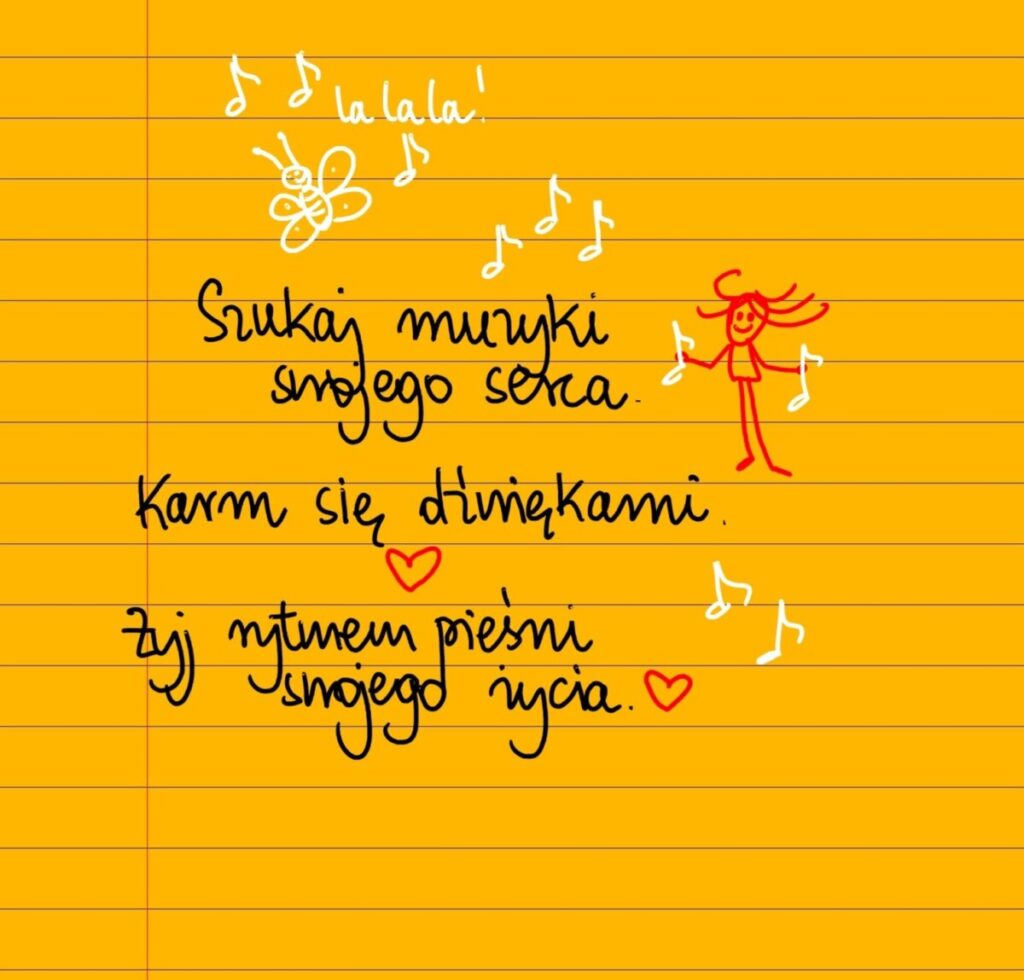 la la la!
Szukaj muzyki
swojego serca.
Karm się dźwiękami.
Żyj rytmem pieśni
swojego życia.